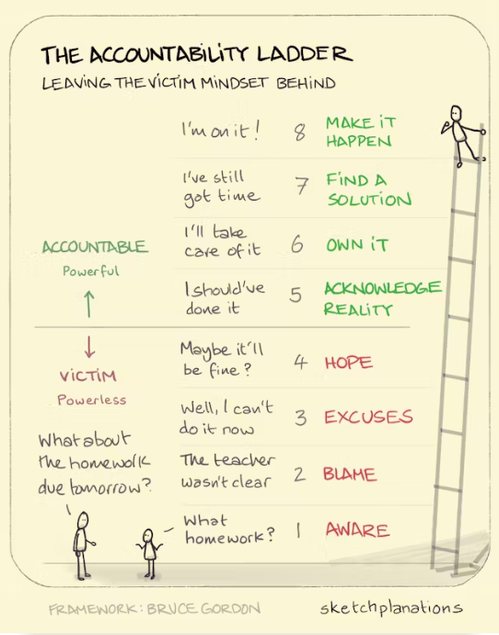 THE ACCOUNTABILITY LADDER
LEAVING THE VICTIM MINDSET BEHIND
I'm on it! 8 MAKE IT
HAPPEN
I've still
got time 7 FIND A
SOLUTION
I'll take
care of it 6 OWN IT
ACCOUNTABLE
Powerful
I should've
done it 5 ACKNOWLEDGE
REALITY
VICTIM
Powerless
Maybe it'll
be fine? 4 HOPE
Well, I can't
do it now 3 EXCUSES
What about
the homework
due tomorrow?
The teacher
wasn't clear 2 BLAME
What
homework? 1 AWARE
FRAMEWORK: BRUCE GORDON
sketchplanations